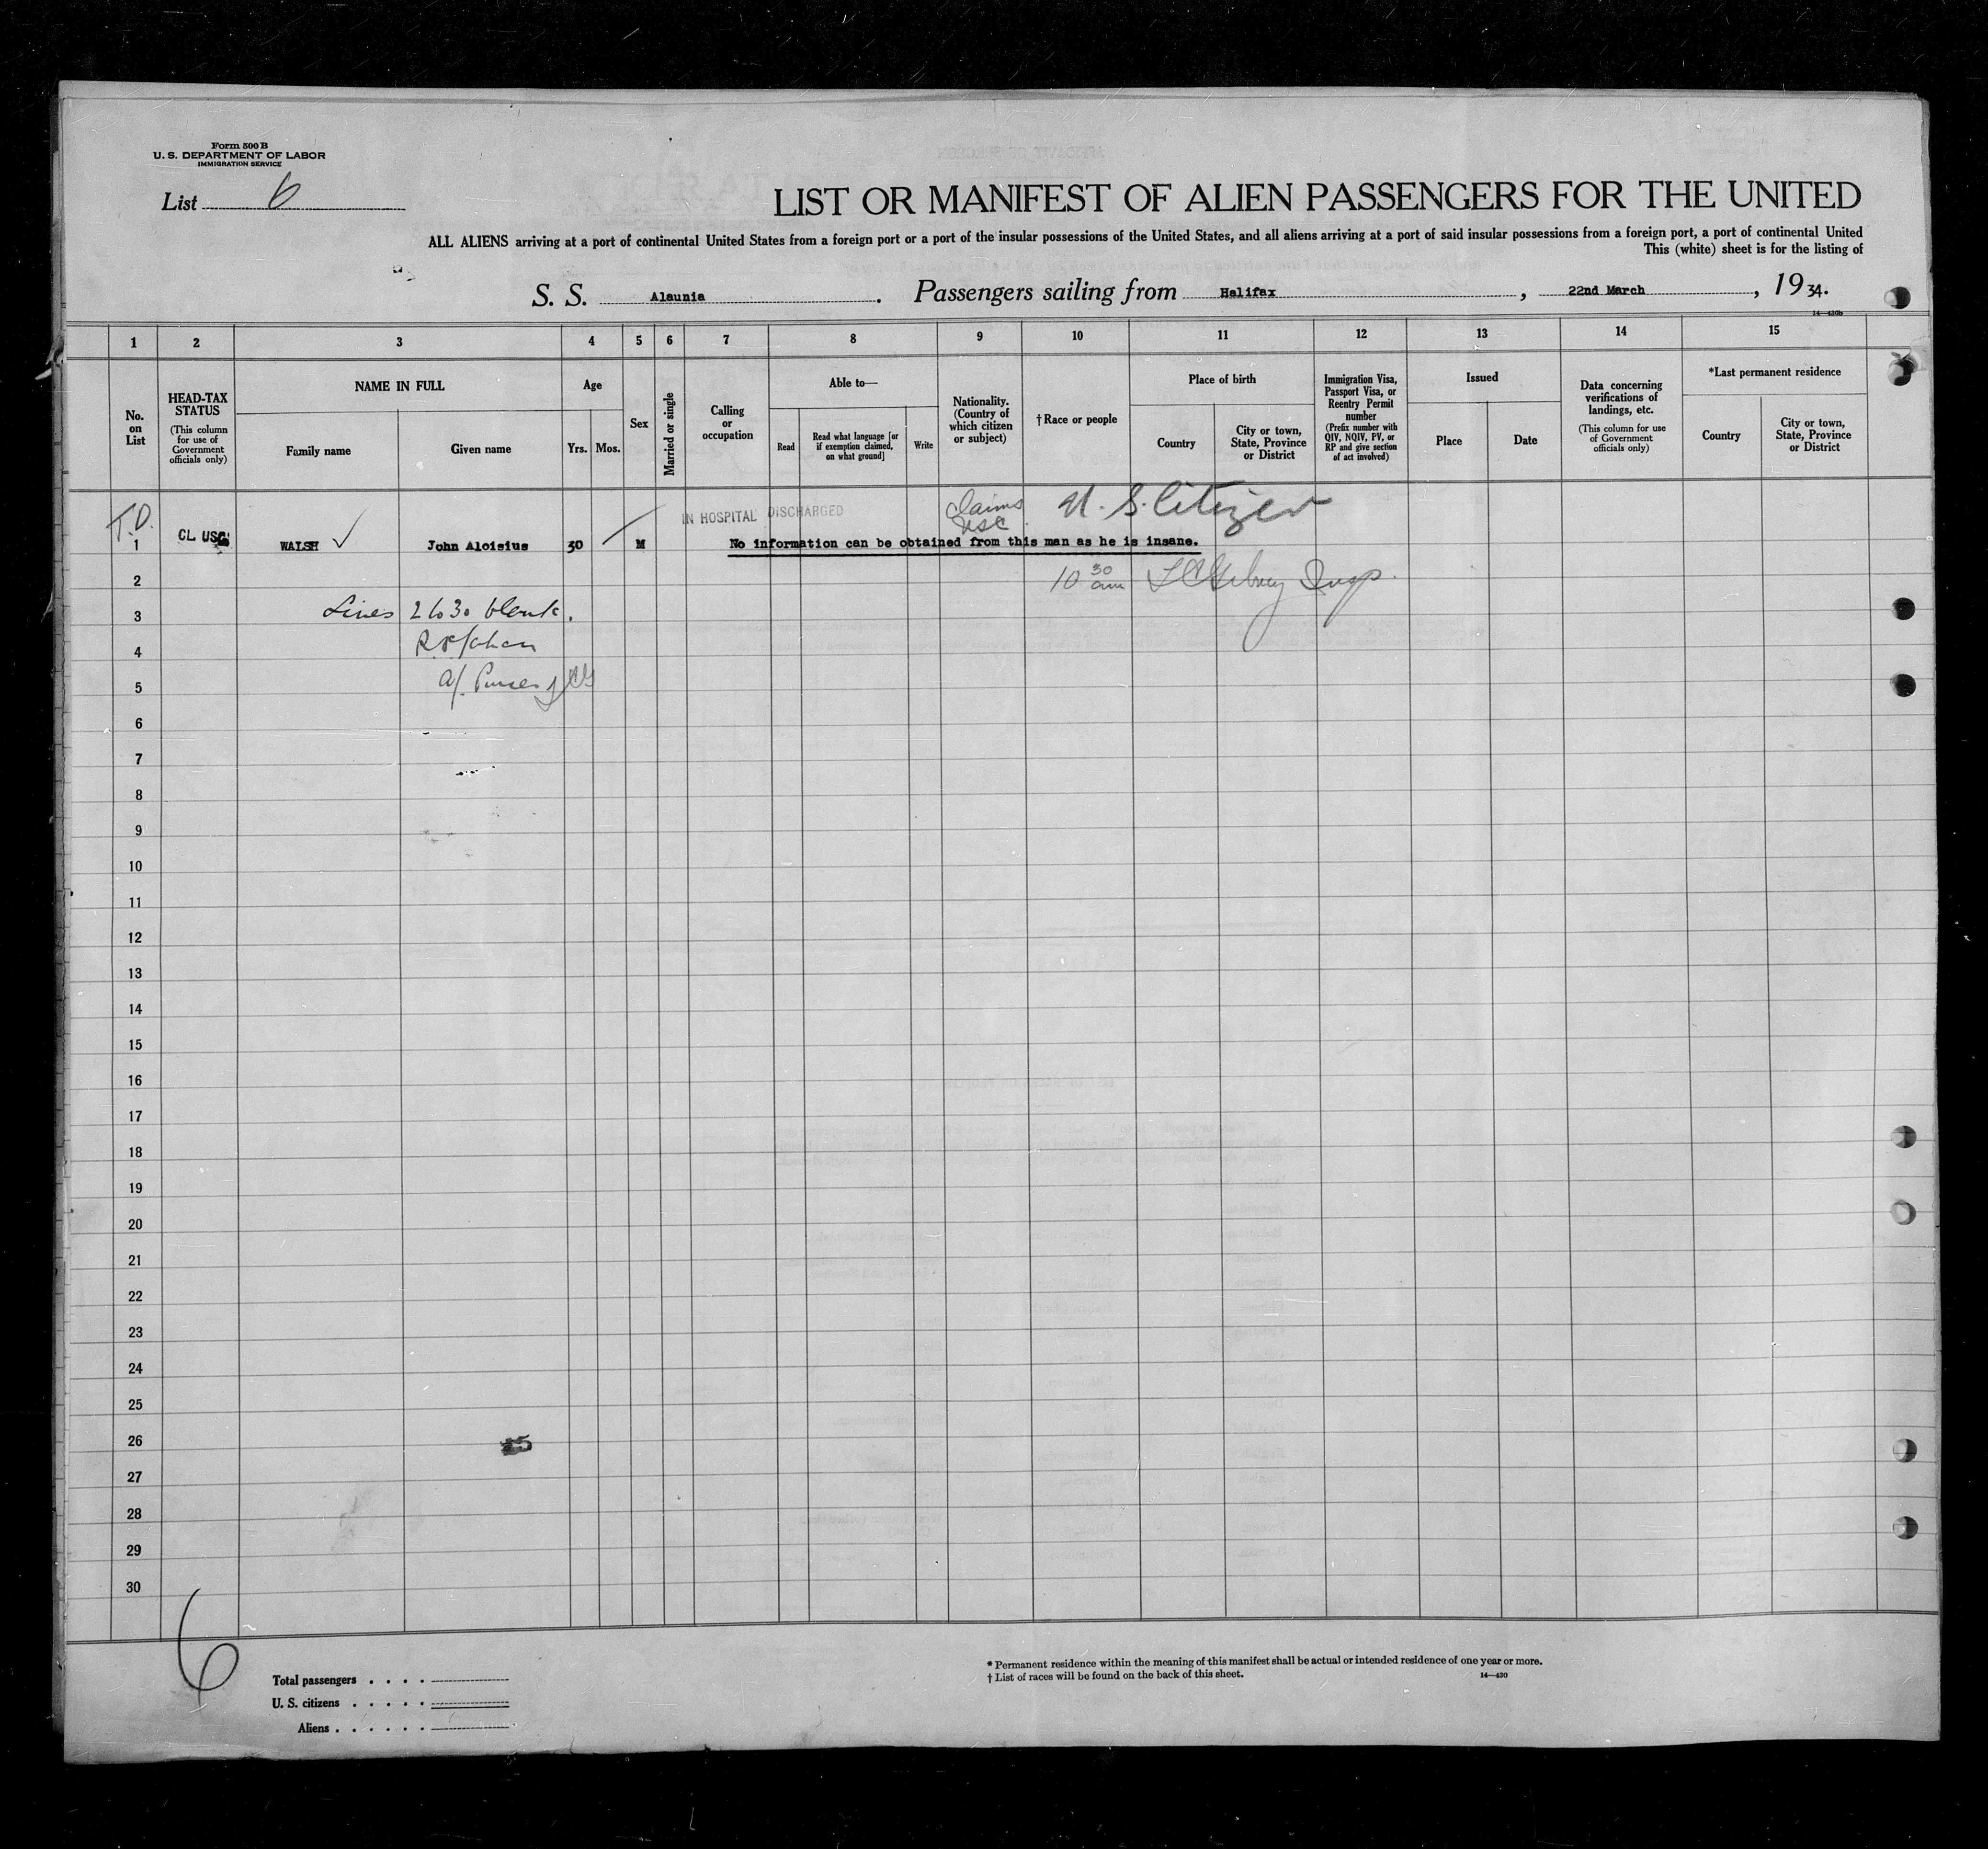 Form 500 B
U. S. DEPARTMENT OF LABOR
IMMIGRATION SERVICE
List 6
LIST OR MANIFEST OF ALIEN PASSENGERS FOR THE UNITED
ALL ALIENS arriving at a port of continental United States from a foreign port or a port of the insular possessions of the United States, and all aliens arriving at a port of said insular possessions from a foreign port, a port of continental United
This (white) sheet is for the listing of
S. S. Alaunia . Passengers sailing from Halifax , 22nd March , 19 34.
14—430b
1 2 3 4 5 6 7 8 9 10 11 12 13 14 15
No. on List
HEAD-TAX STATUS
(This column for use of Government officials only)
NAME IN FULL
Family name
Given name
Age
Yrs. Mos.
Sex
Married or single
Calling or occupation
Able to—
Read
Read what language [or if exemption claimed, on what ground]
Write
Nationality. (Country of which citizen or subject)
† Race or people
Place of birth
Country
City or town, State, Province or District
Immigration Visa, Passport Visa, or Reentry Permit number
(Prefix number with QIV, NQIV, PV, or RP and give section of act involved)
Issued
Place
Date
Data concerning verifications of landings, etc.
(This column for use of Government officials only)
*Last permanent residence
Country
City or town, State, Province or District
T.D.
IN HOSPITAL DISCHARGED
Claims USC
U. S. Citizen
1 CL USC WALSH John Aloisius 30 M No information can be obtained from this man as he is insane.
2 10 30 am Insp.
3 Lines 2 to 30 blank.
4
5 a/. Purser
6
7
8
9
10
11
12
13
14
15
16
17
18
19
20
21
22
23
24
25
26
27
28
29
30
6
Total passengers
U. S. citizens
Aliens
* Permanent residence within the meaning of this manifest shall be actual or intended residence of one year or more.
† List of races will be found on the back of this sheet.
14—430